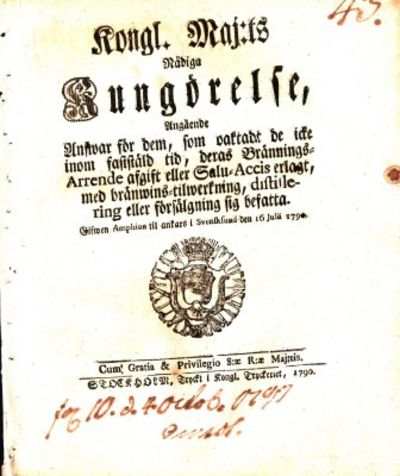 43.
Kongl. Maj:ts
Nådiga
Kungörelse,
Angående
Answar för dem, som oaktadt de icke
inom faststäld tid, deras Brännings-
Arrende afgift eller Salu-Accis erlagt,
med bränwins-tilwerkning, distille-
ring eller försälgning sig befatta.
Gifwen Amphion til ankars i Svensksund den 16 Julii 1790.
Cum Gratia & Privilegio S:æ R:æ Maj:tis.
STOCKHOLM, Tryckt i Kongl. Tryckeriet, 1790.
10. d. 4 octob.